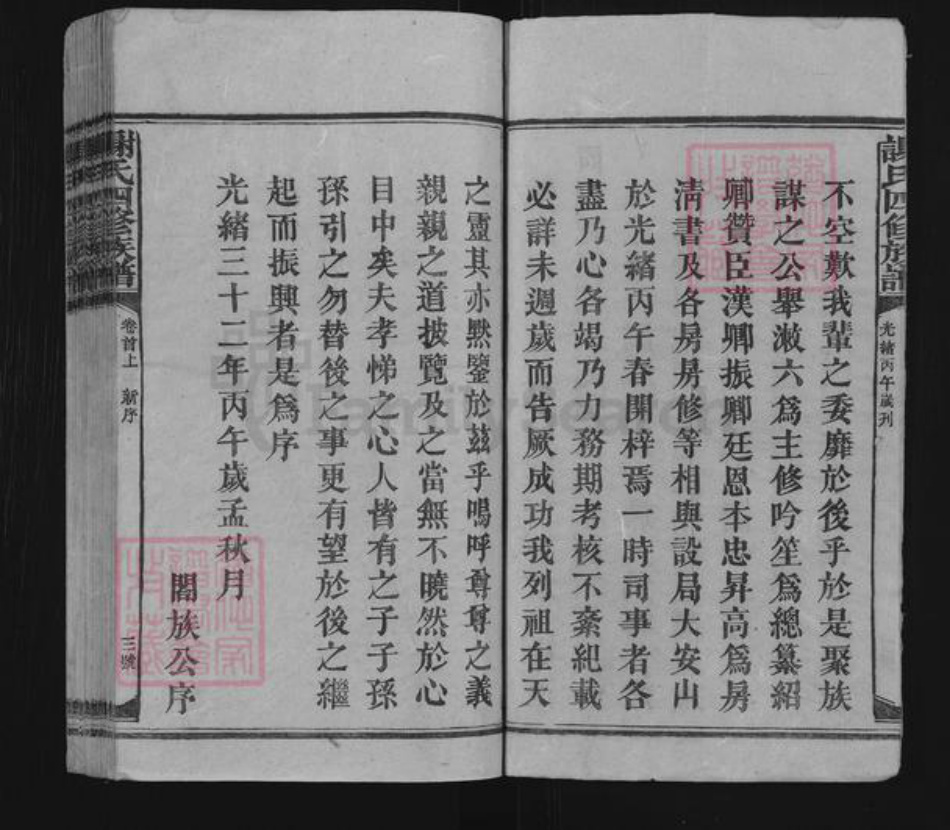 謝氏四修族譜
光緒丙午歲刊
不空歎我輩之委靡於後乎於是聚族
謀之公舉漵六爲主修吟笙爲總纂紹
卿贊臣漢卿振卿廷恩本忠昇高爲房
淸書及各房房修等相與設局大安山
於光緒丙午春開梓焉一時司事者各
盡乃心各竭乃力務期考核不紊紀載
必詳未週歲而告厥成功我列祖在天
之靈其亦默鑒於茲乎嗚呼尊尊之義
親親之道披覽及之當無不曉然於心
目中矣夫孝悌之心人皆有之子子孫
孫引之勿替後之事更有望於後之繼
起而振興者是爲序
光緒三十二年丙午歲孟秋月
闔族公序
謝氏四修族譜
卷首上 新序
三號
FamilySearch